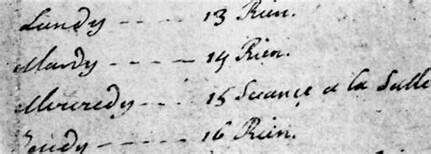 Lundy - - - - 13 Rien.
Mardy - - - - 14 Rien.
Mercredy - - - 15 Seance a la Salle
Jeudy - - - - - 16 Rien.